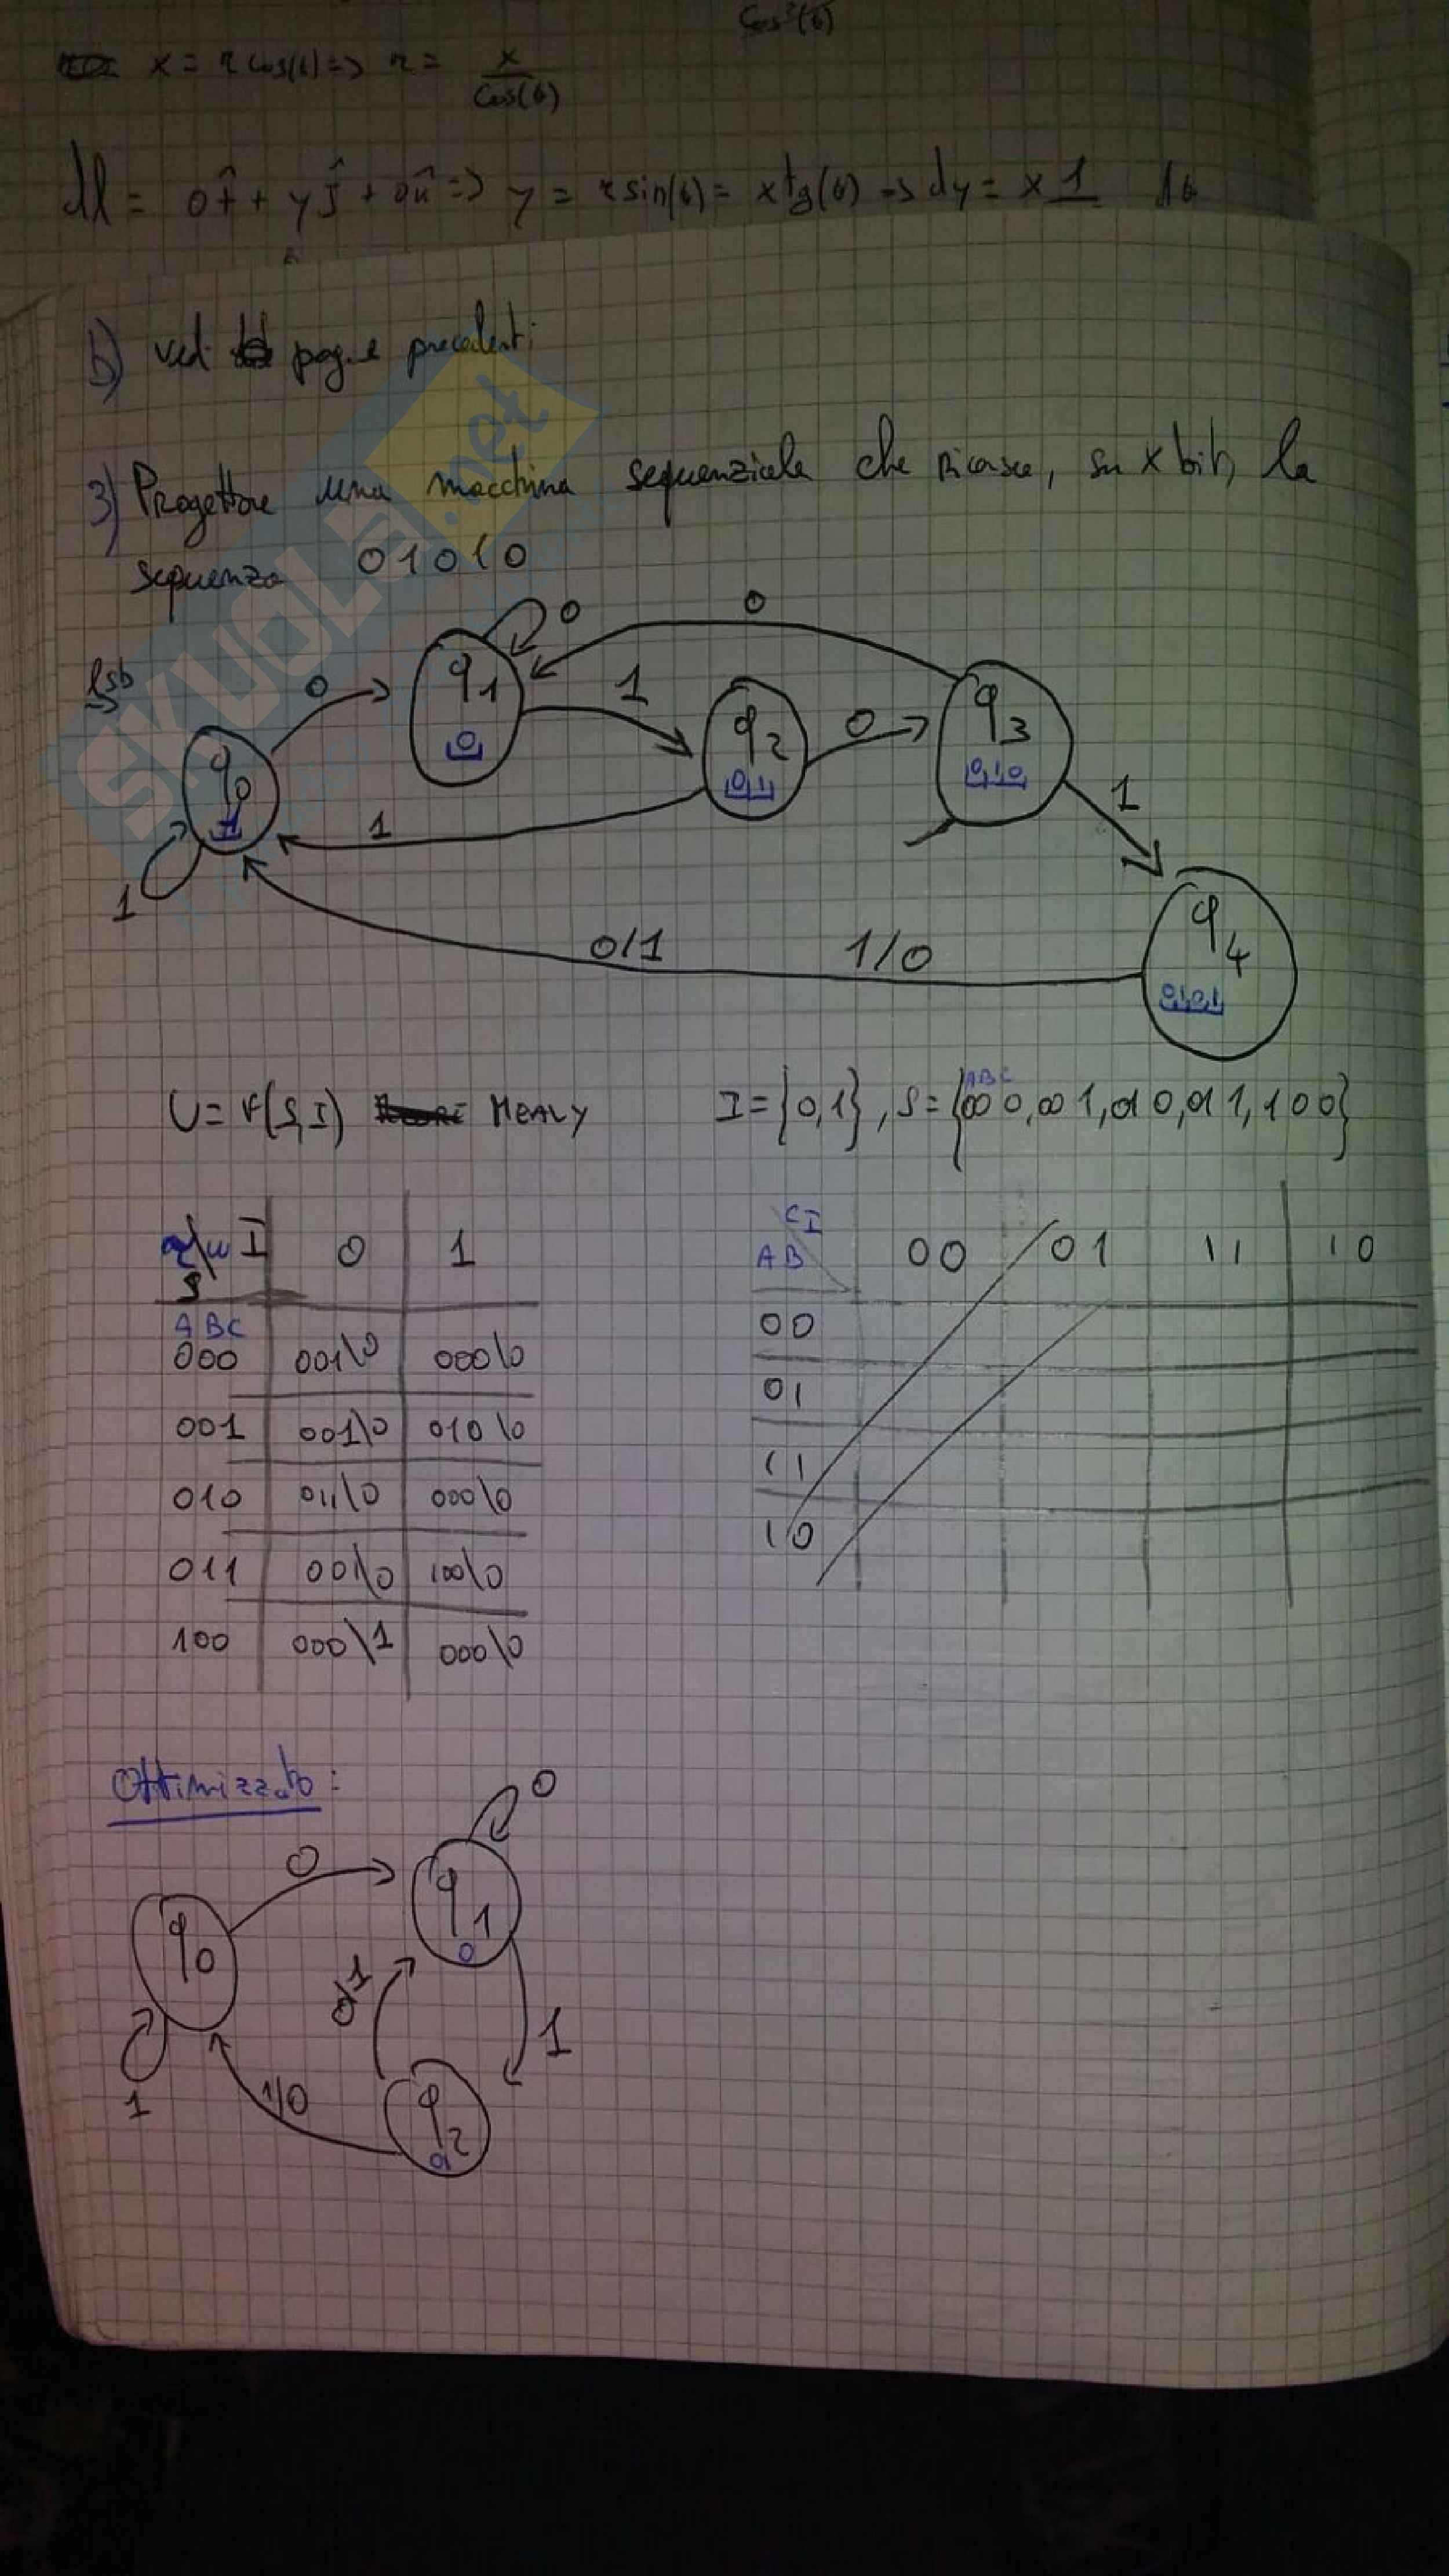 Cos²(θ)
x = r cos(θ) => r = x / Cos(θ)
dl = 0î + yĵ + 0û => y = r sin(θ) = x tg(θ) => dy = x 1 dθ
b) vedi pag.e precedenti
3) Progettare una macchina sequenziale che ricosca, su x bit, la
sequenza 01010
SKUOLA.net
lsb
0
0
q1
0
1
0
q2
01
0
q3
010
1
q0
1
1
1
0/1
1/0
q4
0101
U = F(S,I) MEALY I = {0,1}, S = {000,001,010,011,100}
ABC
I 0 1
S
ABC
000 001\0 000\0
001 001\0 010\0
010 011\0 000\0
011 001\0 100\0
100 000\1 000\0
CI
AB 00 01 11 10
00
01
11
10
Ottimizzato:
0
0
q1
0
q0
1
1
1/0
q2